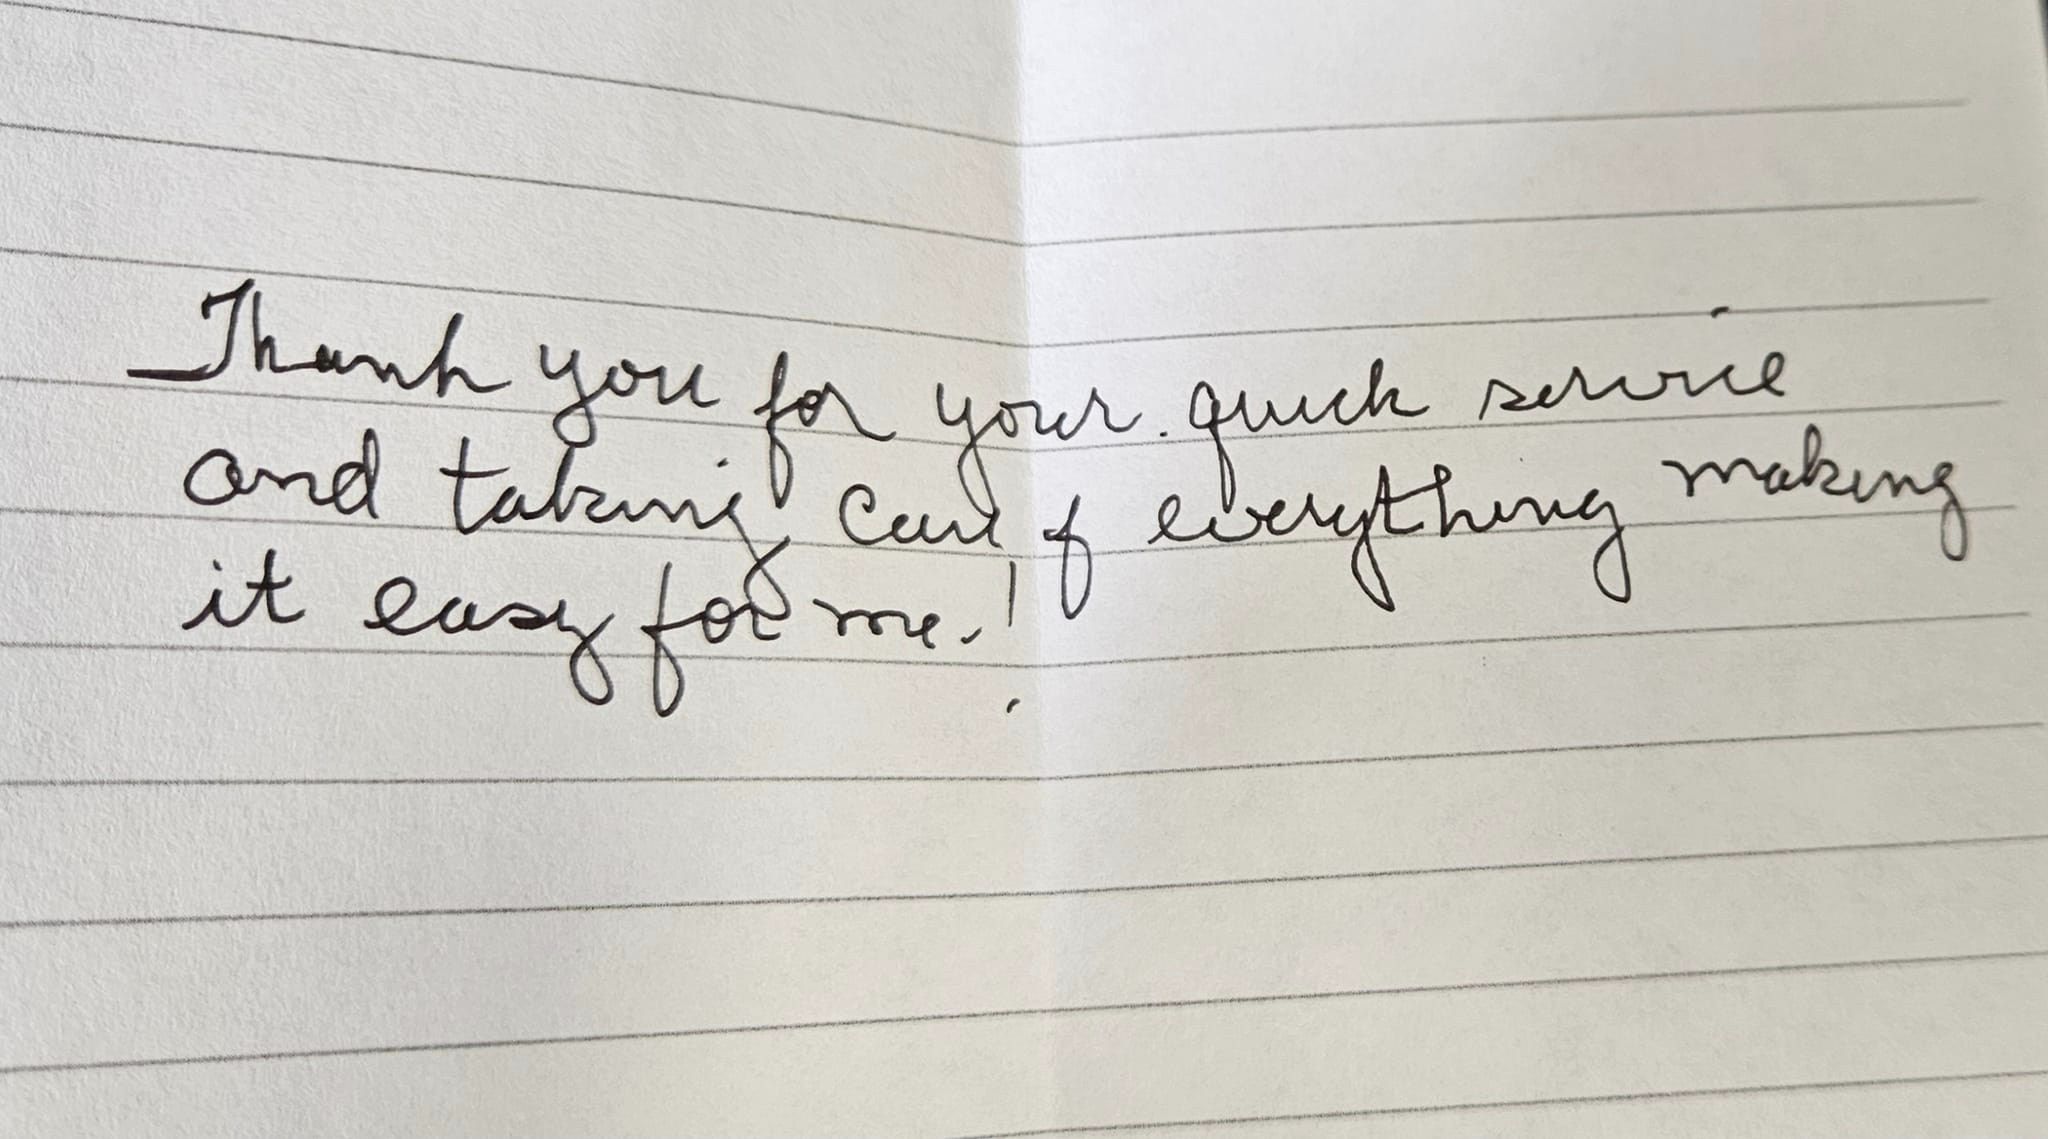 Thank you for your quick service
and taking care of everything making
it easy for me.!